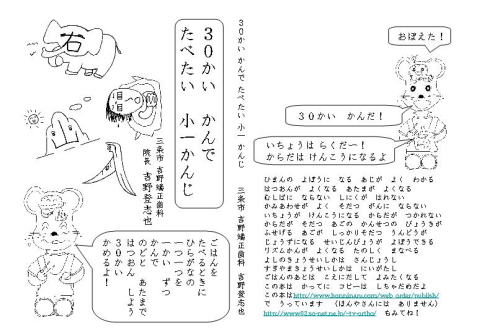 ３０かい かんで
たべたい 小一かんじ
三条市 吉野矯正歯科
院長 吉野登志也
右
目
ごはんを
たべるときに
ひらがなの
一つ一つを
一かい ずつ
かんで
のどと あたまで
はつおん しよう
３０かい
かめるよ！
３０かい かんで たべたい 小一かんじ 三条市 吉野矯正歯科 吉野登志也
おぼえた！
３０かい かんだ！
いちょうは らくだー！
からだは けんこうになるよ
ひまんの よぼうに なる あじが よく わかる
はつおんが よくなる あたまが よくなる
むしばに ならない しにくが はれない
かみあわせが よく そだつ がんに ならない
いちょうが けんこうになる からだが つかれない
からだが そだつ あごの かんせつの びょうきが
ふせげる あごが しっかりそだつ うんどうが
じょうずになる せいじんびょうが よぼうできる
リズムかんが よくなる たのしく まなべる
よしのきょうせいしかは さんじょうし
すぎやまきょうせいしかは にいがたし
ごはんのあとは こえにだして よみたくなる
この本は かってに コピーは しちゃだめよ
この本はhttp://www.honninaru.com/web_order/publish/
で うっています （ほんやさんには ありません）
http://www02.so-net.ne.jp/~tv-ortho/ もみてね！